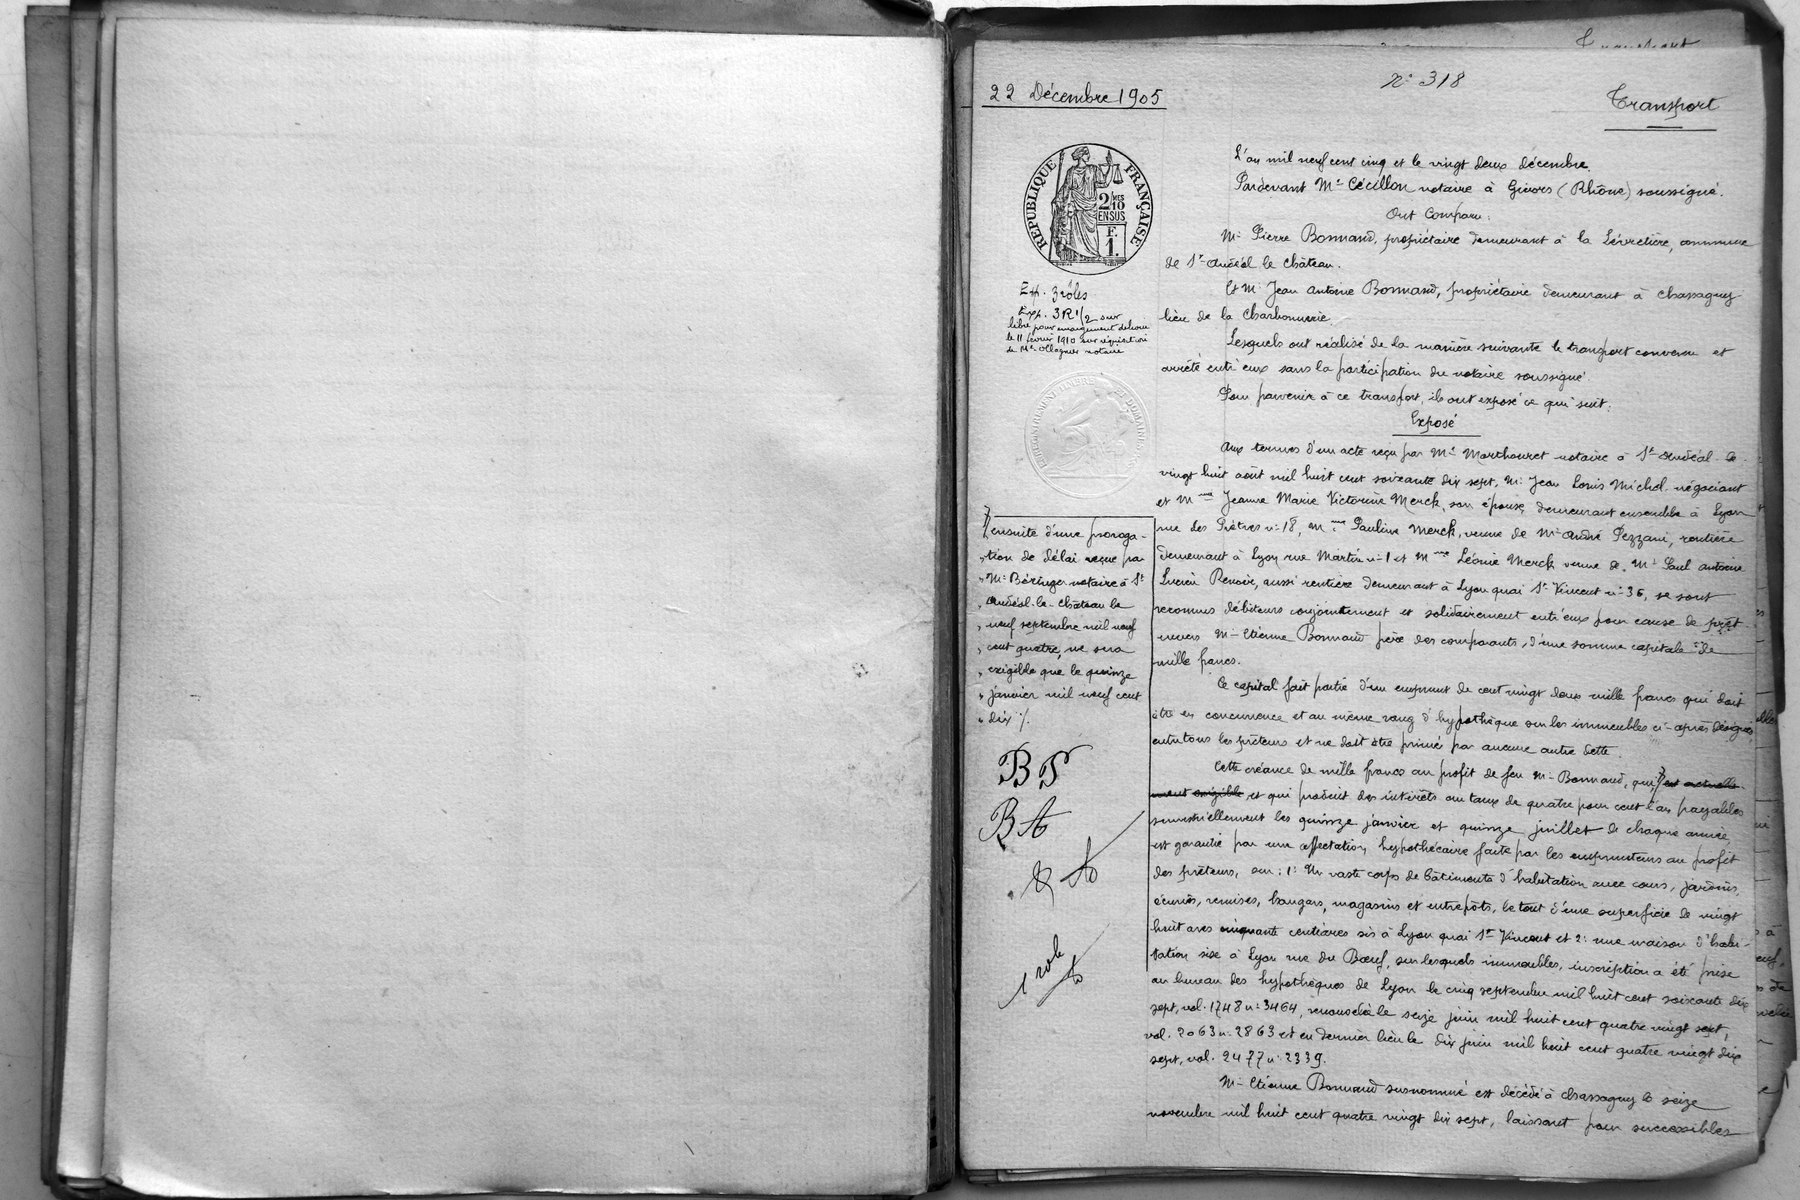 Transport
N° 318
22 Décembre 1905
Transport
L'an mil neuf cent cinq et le vingt deux décembre.
Pardevant Me Cécillon notaire à Givors (Rhône) soussigné.
Ont Comparu:
Mr Pierre Bonnand, propriétaire demeurant à la Lévretière, commune
de St Andéol le Château.
Et Mr Jean Antoine Bonnand, propriétaire demeurant à Chassagny
lieu de la Charbonnerie.
Lesquels ont réalisé de la manière suivante le transport convenu et
arrêté entr'eux sans la participation du notaire soussigné.
Pour parvenir à ce transport, ils ont exposé ce qui suit:
Exposé
Aux termes d'un acte reçu par Me Marthouret notaire à St Andéol le
vingt huit août mil huit cent soixante dix sept, Mr Jean Louis Michel négociant
et Mme Jeanne Marie Victorine Merck, son épouse, demeurant ensemble à Lyon
rue des Prêtres n° 18, Mme Pauline Merck, veuve de Mr André Pezzani, rentière
demeurant à Lyon rue Martin n° 1 et Mme Léonie Merck veuve de Mr Paul Antoine
Lucien Renoir, aussi rentière demeurant à Lyon quai St Vincent n° 36, se sont
reconnus débiteurs conjointement et solidairement entr'eux pour cause de prêt
envers Mr Etienne Bonnand père des comparants, d'une somme capitale de
mille francs.
Ce capital fait partie d'un emprunt de cent vingt deux mille francs qui doit
être en concurrence et au même rang d'hypothèque sur les immeubles ci-après désignés
entre tous les prêteurs et ne doit être primé par aucune autre dette.
Cette créance de mille francs au profit de feu Mr Bonnand, qui est actuelle-
ment exigible et qui produit des intérêts au taux de quatre pour cent l'an payables
semestriellement les quinze janvier et quinze juillet de chaque année,
est garantie par une affectation hypothécaire faite par les emprunteurs au profit
des prêteurs, sur: 1° Un vaste corps de bâtiments d'habitation avec cours, jardins,
écuries, remises, hangars, magasins et entrepôts, le tout d'une superficie de vingt
huit ares cinquante centiares sis à Lyon quai St Vincent et 2° une maison d'habi-
tation sise à Lyon rue du Bœuf, sur lesquels immeubles, inscription a été prise
au bureau des hypothèques de Lyon le cinq septembre mil huit cent soixante dix
sept, vol. 1748 n° 3464, renouvelée le seize juin mil huit cent quatre vingt sept,
vol. 2063 n° 2863 et en dernier lieu le dix juin mil huit cent quatre vingt dix
sept, vol. 2477 n° 2339.
Mr Etienne Bonnand susnommé est décédé à Chassagny le seize
novembre mil huit cent quatre vingt dix sept, laissant pour successibles
RÉPUBLIQUE FRANÇAISE
2/10 MES
EN SUS
F.
1.
Exp. 3 rôles
Exp. 3R 1/2 sur
libre pour émargement délivrée
le 11 février 1910 sur réquisition
de Me Ollagnier notaire
ENREGISTREMENT TIMBRE ET DOMAINES
ensuite d'une proroga-
tion de délai reçue par
Me Béringer notaire à St
Andéol-le-Château le
neuf septembre mil neuf
cent quatre, ne sera
exigible que le quinze
janvier mil neuf cent
dix ./.
BP
BA
1 role